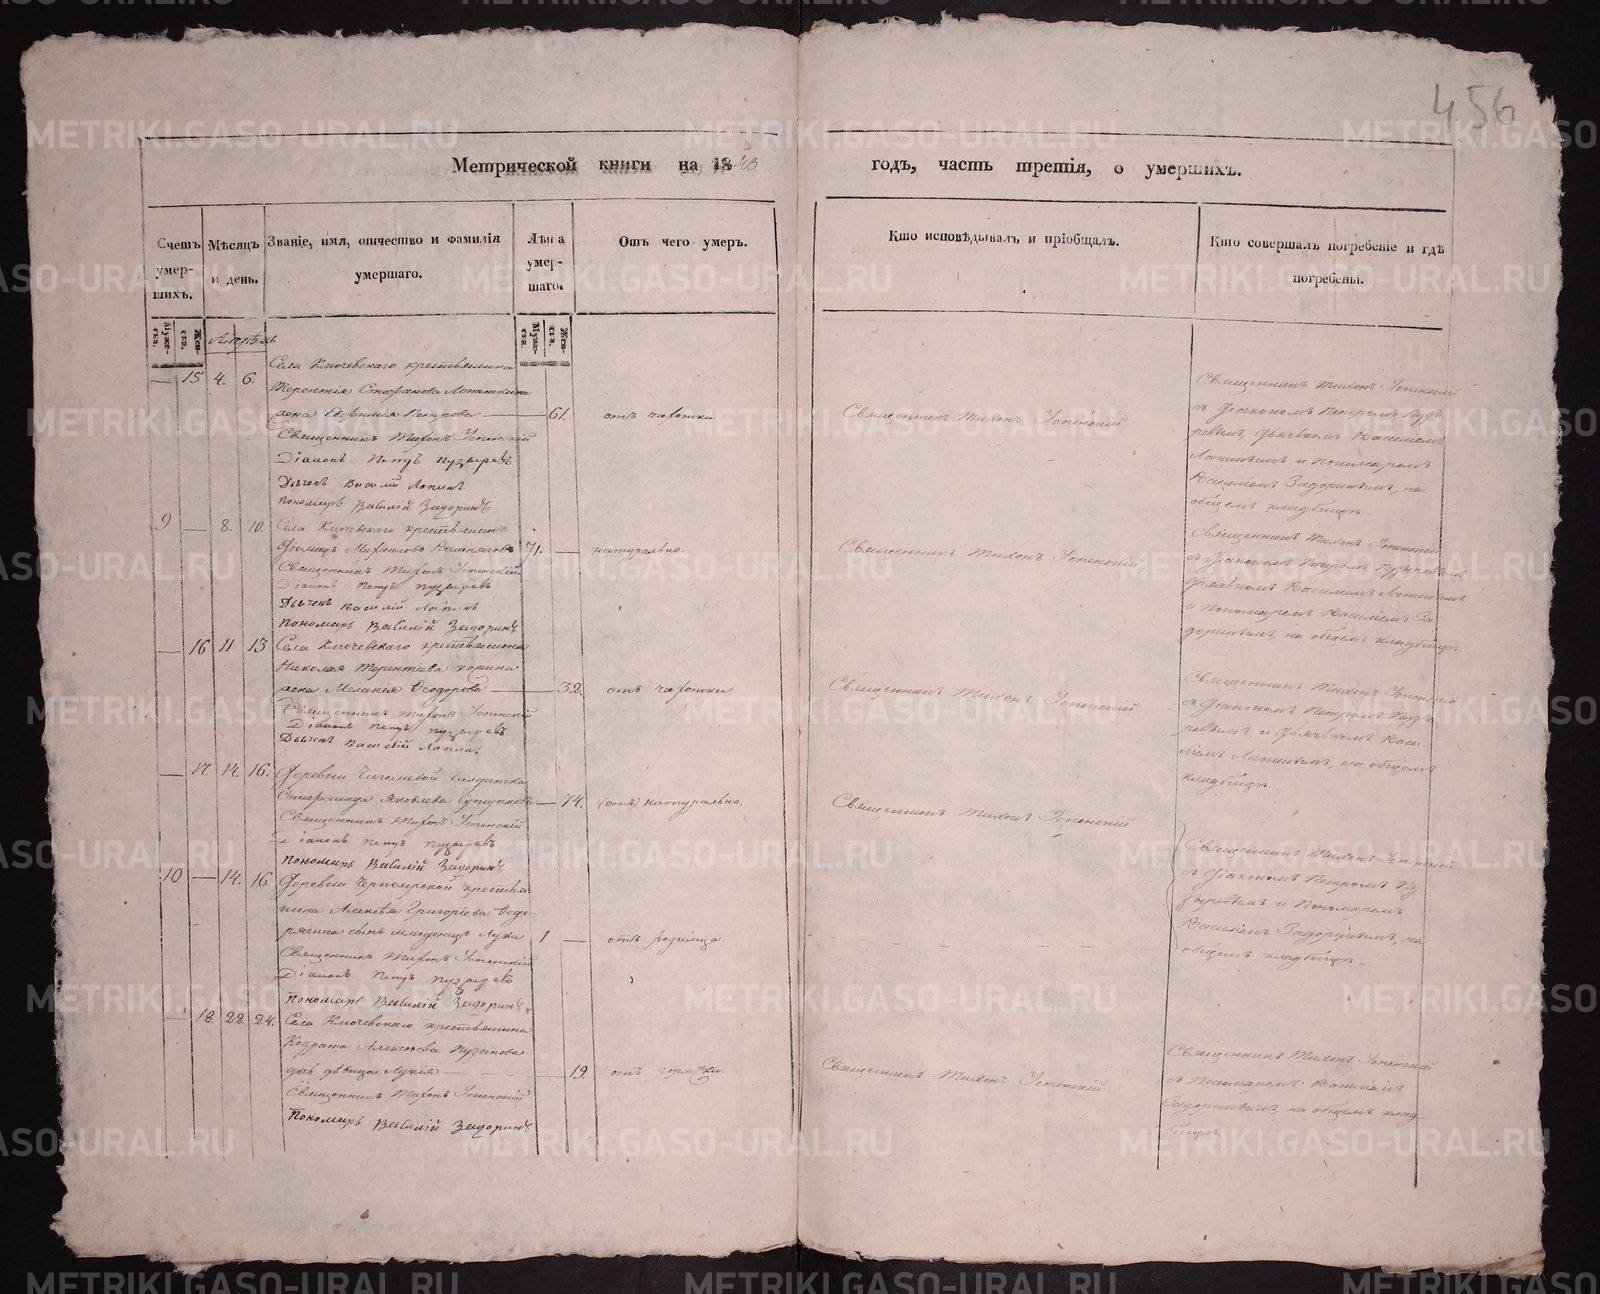 456
Метрической книги на 1843 годъ, часть третія, о умершихъ.
Счетъ умер-
шихъ.
Мѣсяцъ
и день.
Званіе, имя, отчество и фамилія
умершаго.
Лѣта
умер-
шаго.
Отъ чего умеръ.
Кто исповѣдывалъ и пріобщалъ.
Кто совершалъ погребеніе и гдѣ
погребены.
Муже-
ска.
Жен-
ска.
Муже-
ска.
Жен-
ска.
Апрѣль
— 15 4. 6.
Села Ключевскаго крестьянина
Терентія Стефанова
жена Евфимія Петрова — 61. отъ чахотки
Священникъ Тихонъ Успенскій
Діаконъ Петръ Пузыревъ
Дьячекъ Василій Лапинъ
Пономарь Василій Задоринъ
Священникъ Тихонъ Успенскій
Священникъ Тихонъ Успенскій
съ Діакономъ Петромъ Пузы-
ревымъ, Дьячкомъ Василіемъ
Лапинымъ и Пономаремъ
Василіемъ Задоринымъ, на
общемъ кладбищѣ.
9 — 8. 10.
Села Ключевскаго крестьянинъ
Михаиловъ 71. — натурально.
Священникъ Тихонъ Успенскій
Діаконъ Петръ Пузыревъ
Дьячекъ Василій Лапинъ
Пономарь Василій Задоринъ
Священникъ Тихонъ Успенскій
Священникъ Тихонъ Успенскій
съ Діакономъ Петромъ Пузыревымъ,
Дьячкомъ Василіемъ Лапинымъ
и Пономаремъ Василіемъ За-
доринымъ, на общемъ кладбищѣ.
— 16 11 13
Села Ключевскаго крестьянина
Николая Терентіева
жена Меланія Ѳеодорова — 32. отъ чахотки
Священникъ Тихонъ Успенскій
Діаконъ Петръ Пузыревъ
Дьячекъ Василій Лапинъ
Священникъ Тихонъ Успенскій
Священникъ Тихонъ Успенскій
съ Діакономъ Петромъ Пузы-
ревымъ и Дьячкомъ Васи-
ліемъ Лапинымъ, на общемъ
кладбищѣ.
— 17. 14. 16.
Деревни солдатка
Яковлева — 74. (отъ) натурально.
Священникъ Тихонъ Успенскій
Діаконъ Петръ Пузыревъ
Пономарь Василій Задоринъ
Священникъ Тихонъ Успенскій
Священникъ Тихонъ Успенскій
съ Діакономъ Петромъ Пу-
зыревымъ и Пономаремъ
Василіемъ Задоринымъ, на
общемъ кладбищѣ.
10 — 14. 16.
Деревни Черноярской крестья-
нина Алексѣя Григоріева
сынъ младенецъ Лука 1 — отъ родимца.
Священникъ Тихонъ Успенскій
Діаконъ Петръ Пузыревъ
Пономарь Василій Задоринъ
— 18. 22. 24.
Села Ключевскаго крестьянина
Кодрата Алексѣева
дочь дѣвица Лукія — 19. отъ горячки.
Священникъ Тихонъ Успенскій
Пономарь Василій Задоринъ
Священникъ Тихонъ Успенскій
Священникъ Тихонъ Успенскій
съ Пономаремъ Василіемъ
Задоринымъ, на общемъ клад-
бищѣ.
METRIKI.GASO-URAL.RU